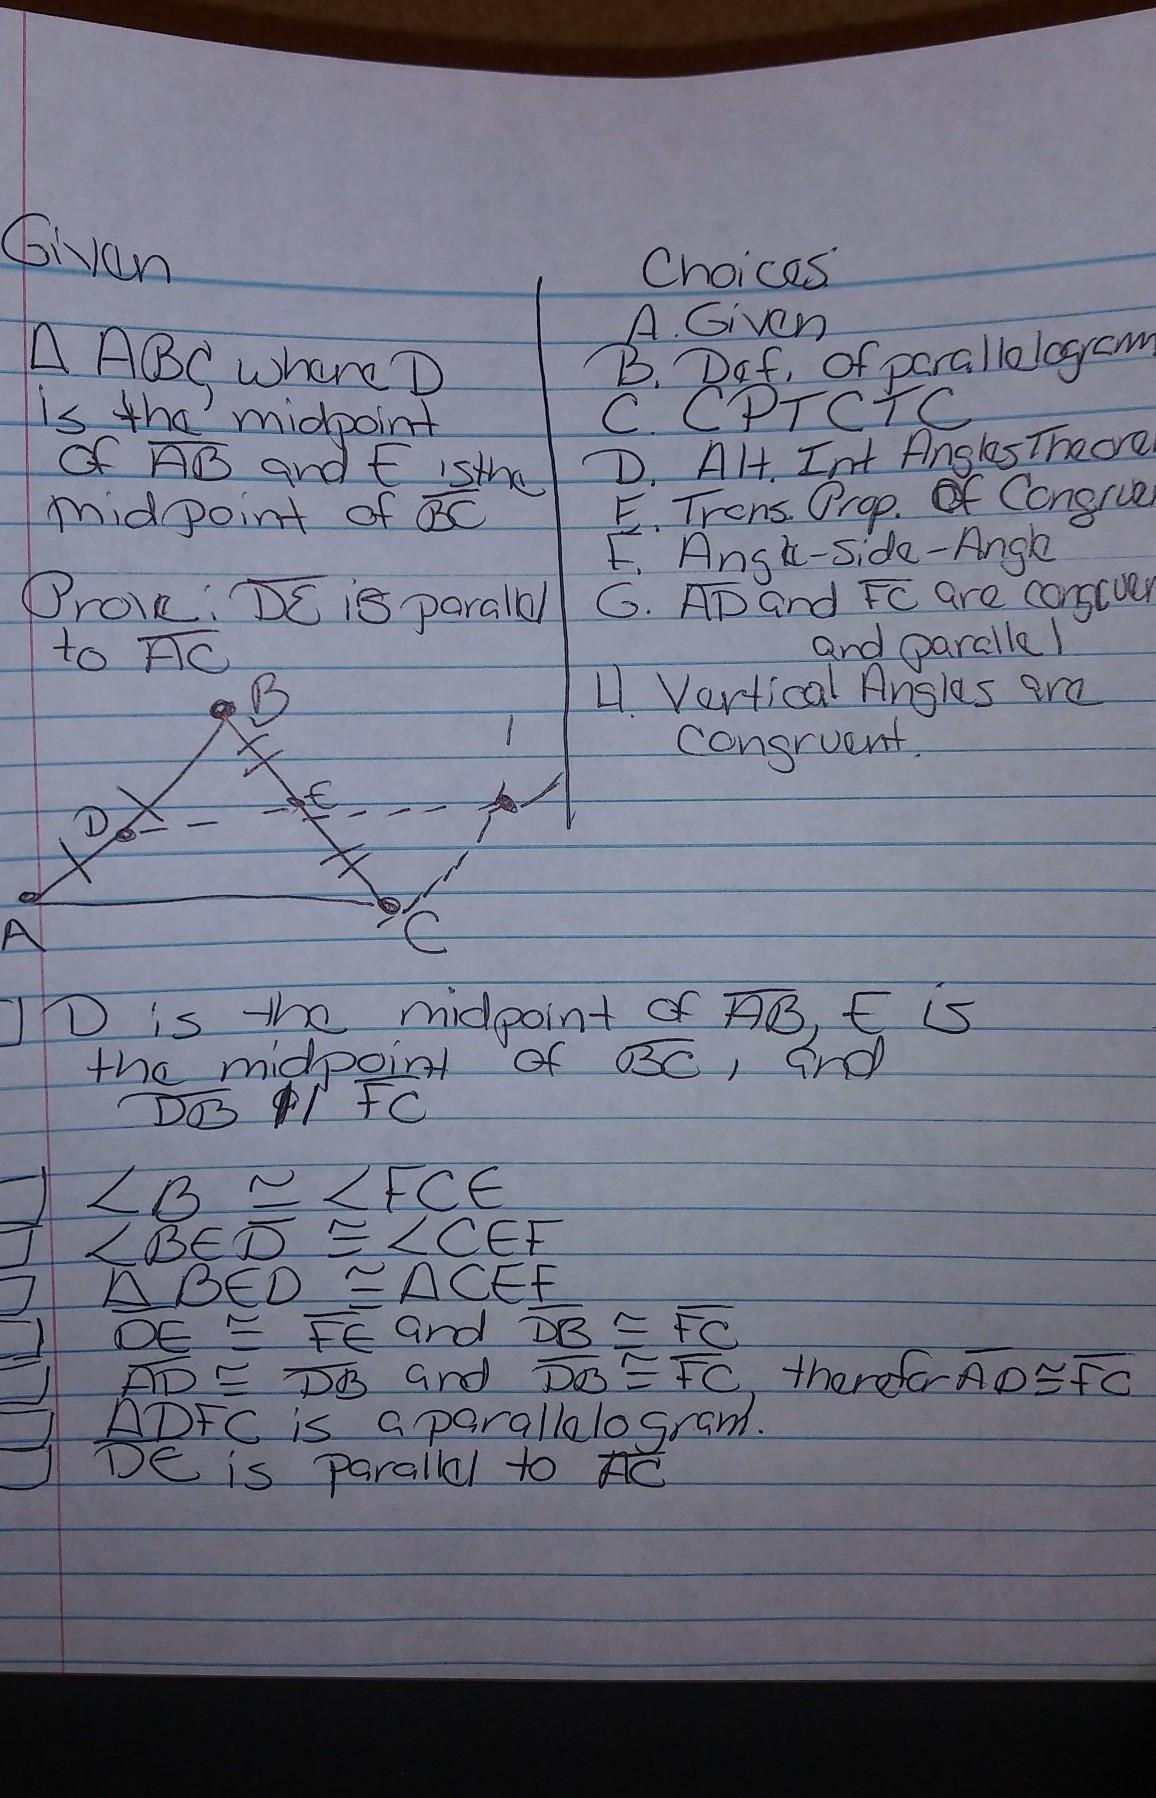 Given
Δ ABC, where D
is the midpoint
of A̅B̅ and E is the
midpoint of B̅C̅
Prove: D̅E̅ is parallel
to A̅C̅
Choices
A. Given
B. Def. of parallelogram
C. CPTCTC
D. Alt. Int Angles Theore
E. Trans. Prop. Of Congrue
F. Angle-Side-Angle
G. A̅D̅ and F̅C̅ are congruen
and parallel
H. Vertical Angles are
Congruent.
B
D
E
A
C
D is the midpoint of A̅B̅, E is
the midpoint of B̅C̅, and
D̅B̅ || F̅C̅
∠B ≅ ∠FCE
∠BED ≅ ∠CEF
Δ BED ≅ ΔCEF
D̅E̅ ≅ F̅E̅ and D̅B̅ ≅ F̅C̅
A̅D̅ ≅ D̅B̅ and D̅B̅ ≅ F̅C̅, therefor A̅D̅ ≅ F̅C̅
ADFC is a parallelogram.
D̅E̅ is parallel to A̅C̅